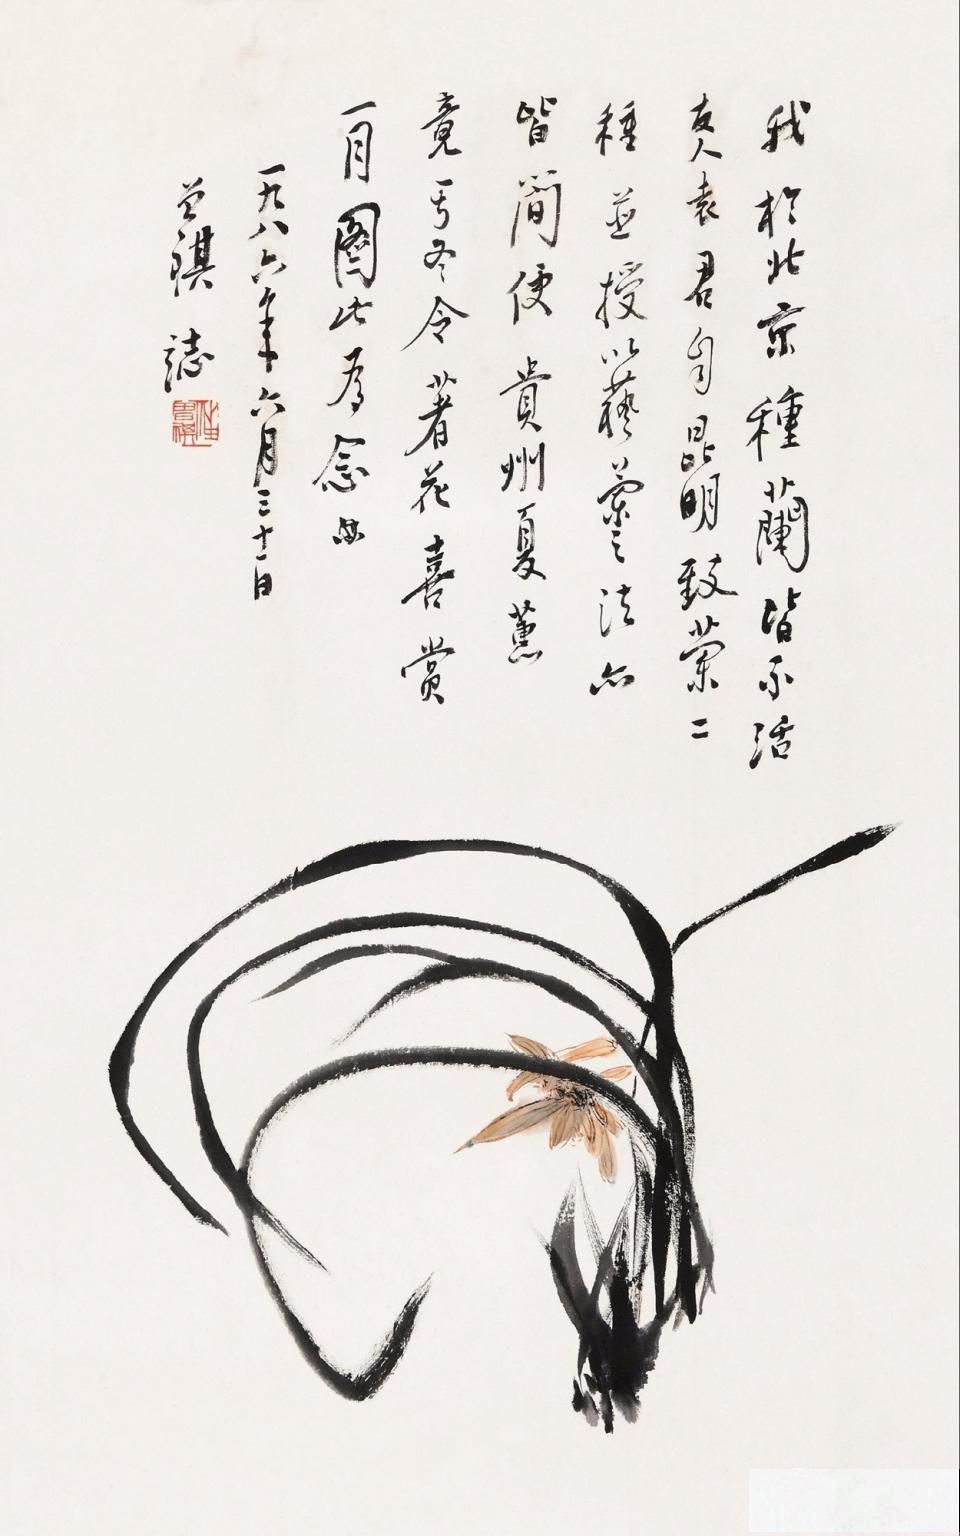 我於北京種蘭皆不活
友人袁君自昆明致蘭二
種並授以藝蘭之法亦
皆簡便貴州夏蕙
竟于冬令著花喜賞
一月圖此為念
一九八六年六月三十日
曾祺誌
汪曾祺